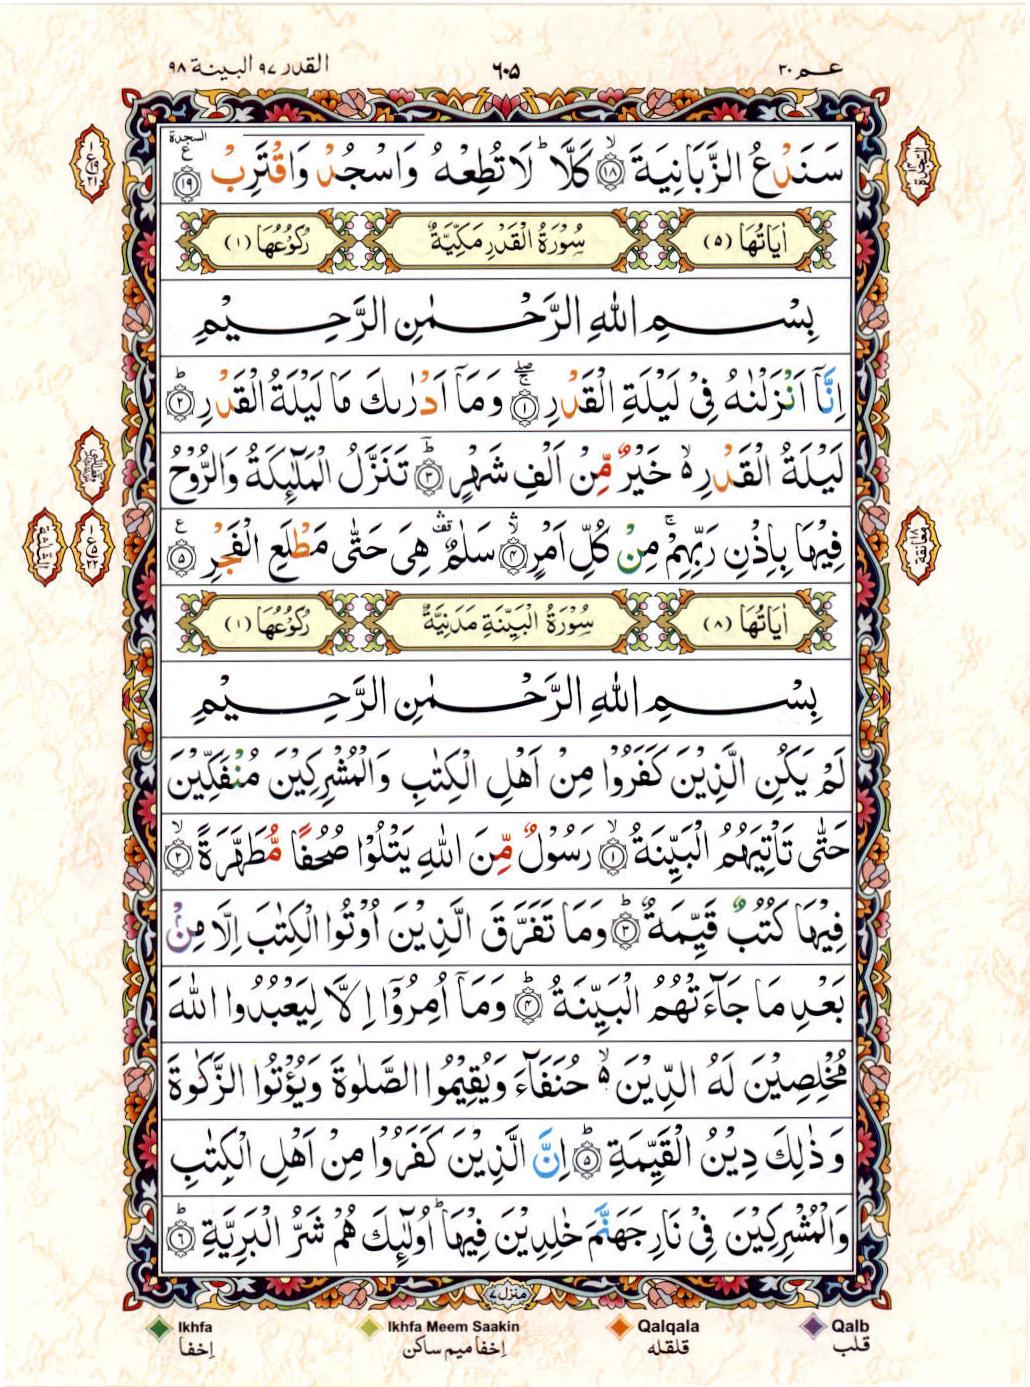 عم ۳۰ ۶۰۵ القدر ۹۷ البينة ۹۸
سَنَدْعُ الزَّبَانِيَةَ ۙ‏﴿۱۸﴾ كَلَّا ؕ لَا تُطِعْهُ وَاسْجُدْ وَاقْتَرِبْ ﴿۱۹﴾ السجدة ع
اٰيَاتُهَا (۵) سُوْرَةُ الْقَدْرِ مَكِّيَّةٌ رُكُوْعُهَا (۱)
بِسْمِ اللّٰهِ الرَّحْمٰنِ الرَّحِيْمِ
اِنَّاۤ اَنْزَلْنٰهُ فِيْ لَيْلَةِ الْقَدْرِ ۚۖ‏﴿۱﴾ وَمَاۤ اَدْرٰىكَ مَا لَيْلَةُ الْقَدْرِ ؕ‏﴿۲﴾
لَيْلَةُ الْقَدْرِ ۙ خَيْرٌ مِّنْ اَلْفِ شَهْرٍ ؕؔ‏﴿۳﴾ تَنَزَّلُ الْمَلٰٓئِكَةُ وَالرُّوْحُ
فِيْهَا بِاِذْنِ رَبِّهِمْ ۚ مِنْ كُلِّ اَمْرٍ ۛۙ‏﴿۴﴾ سَلٰمٌ ۛ قف هِيَ حَتّٰى مَطْلَعِ الْفَجْرِ ﴿۵﴾ ع
اٰيَاتُهَا (۸) سُوْرَةُ الْبَيِّنَةِ مَدَنِيَّةٌ رُكُوْعُهَا (۱)
بِسْمِ اللّٰهِ الرَّحْمٰنِ الرَّحِيْمِ
لَمْ يَكُنِ الَّذِيْنَ كَفَرُوْا مِنْ اَهْلِ الْكِتٰبِ وَالْمُشْرِكِيْنَ مُنْفَكِّيْنَ
حَتّٰى تَاْتِيَهُمُ الْبَيِّنَةُ ۙ‏﴿۱﴾ رَسُوْلٌ مِّنَ اللّٰهِ يَتْلُوْا صُحُفًا مُّطَهَّرَةً ۙ‏﴿۲﴾
فِيْهَا كُتُبٌ قَيِّمَةٌ ؕ‏﴿۳﴾ وَمَا تَفَرَّقَ الَّذِيْنَ اُوْتُوا الْكِتٰبَ اِلَّا مِنْ
بَعْدِ مَا جَآءَتْهُمُ الْبَيِّنَةُ ؕ‏﴿۴﴾ وَمَاۤ اُمِرُوْۤا اِلَّا لِيَعْبُدُوا اللّٰهَ
مُخْلِصِيْنَ لَهُ الدِّيْنَ ۙ۬ حُنَفَآءَ وَيُقِيْمُوا الصَّلٰوةَ وَيُؤْتُوا الزَّكٰوةَ
وَذٰلِكَ دِيْنُ الْقَيِّمَةِ ؕ‏﴿۵﴾ اِنَّ الَّذِيْنَ كَفَرُوْا مِنْ اَهْلِ الْكِتٰبِ
وَالْمُشْرِكِيْنَ فِيْ نَارِ جَهَنَّمَ خٰلِدِيْنَ فِيْهَا ؕ اُولٰٓئِكَ هُمْ شَرُّ الْبَرِيَّةِ ؕ‏﴿۶﴾
منزل ۷
Ikhfa Ikhfa Meem Saakin Qalqala Qalb
اِخفا اِخفا ميم ساكن قلقله قلب